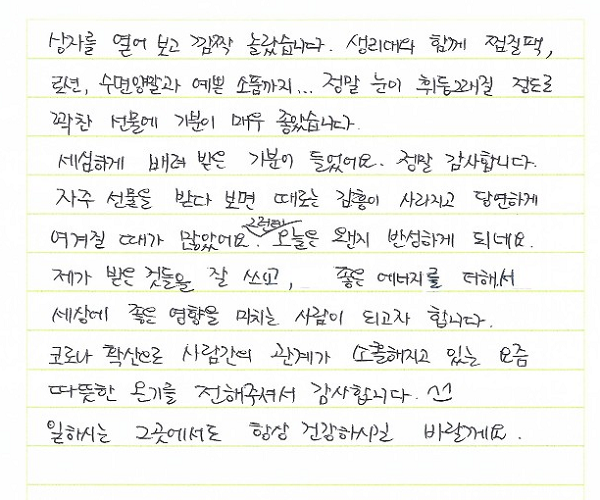 상자를 열어 보고 깜짝 놀랐습니다. 생리대와 함께 찜질팩,
로션, 수면양말과 예쁜 소품까지... 정말 눈이 휘둥그래질 정도로
꽉찬 선물에 기분이 매우 좋았습니다.
세심하게 배려 받은 기분이 들었어요. 정말 감사합니다.
자주 선물을 받다 보면 때로는 감흥이 사라지고 당연하게
여겨질 때가 많았어요. 그런데 오늘은 왠지 반성하게 되네요.
제가 받은 것들을 잘 쓰고, 좋은 에너지를 더해서
세상에 좋은 영향을 미치는 사람이 되고자 합니다.
코로나 확산으로 사람간의 관계가 소홀해지고 있는 요즘
따뜻한 온기를 전해주셔서 감사합니다. ^^
일하시는 그곳에서도 항상 건강하시길 바랄게요.